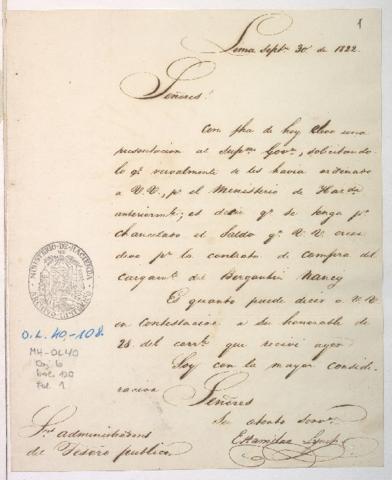 1
Lima Septe. 30 de 1822.
Señores.
Con fha de hoy elevo una
presentacion al Supmo Govno, solicitando
lo qe verualmente se les havia ordenado
a V.V., pr el Ministerio de Hacda
anteriormte; es decir qe se tenga pr
chancelado el Saldo qe V.V. cree
devo pr la contrata de compra del
Cargamto del Bergantin Nancy
Es quanto puedo decir a V.V.
en contestacion a su honorable de
28 del corrte que recivi ayer
Soy con la mayor consid-
eracion
Señores
Su atento servor
Srs administradores
del Tesoro publico
MINISTERIO-DE-HACIENDA
ARCHIVO HISTORICO
O.L. 40-108.
MH-OL40
Caj. 6
Doc. 120
Fol. 1